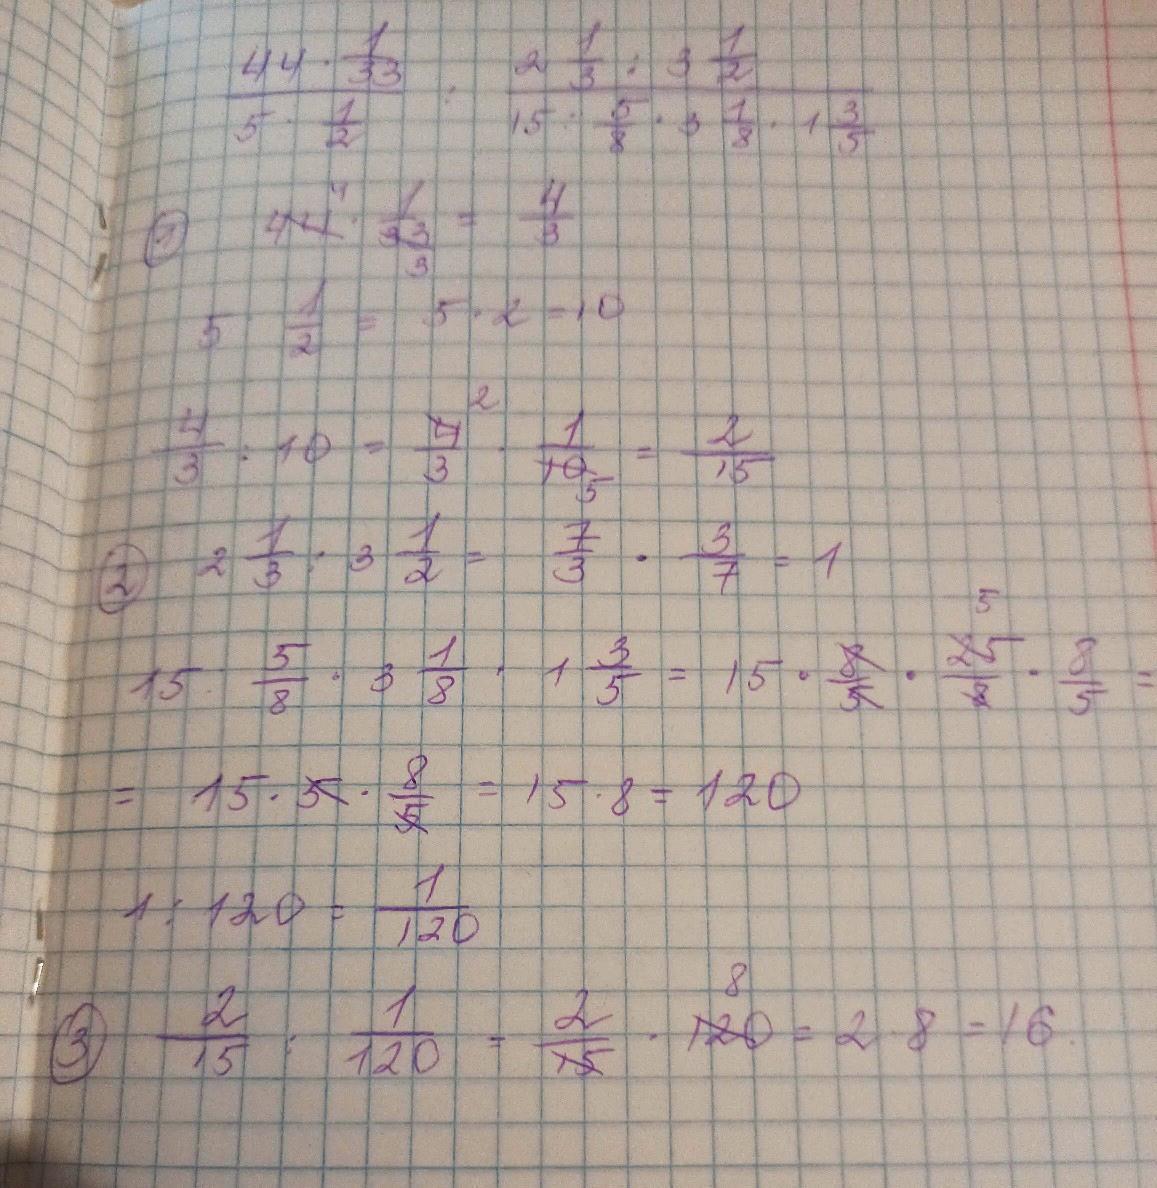 44 · 1/33 / 5 · 1/2 : 2 1/3 : 3 1/2 / 15 : 5/8 · 3 1/8 · 1 3/5
① 44 4 · 1/33 3 = 4/3
5 1/2 = 5 · 2 = 10
4/3 : 10 = 4/3 2 · 1/10 5 = 2/15
② 2 1/3 : 3 1/2 = 7/3 · 3/7 = 1
15 : 5/8 · 3 1/8 · 1 3/5 = 15 · 8/5 · 25/8 5 · 8/5 =
= 15 · 5 · 8/5 = 15 · 8 = 120
1 : 120 = 1/120
③ 2/15 : 1/120 = 2/15 · 120 8 = 2 · 8 = 16.